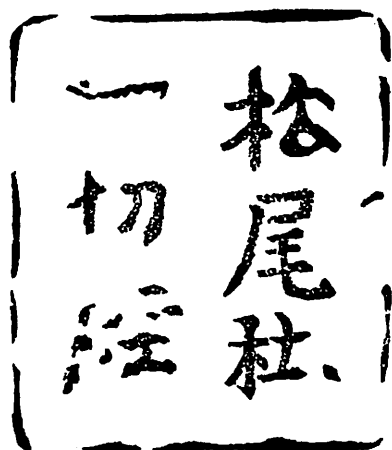 松尾社
一切経